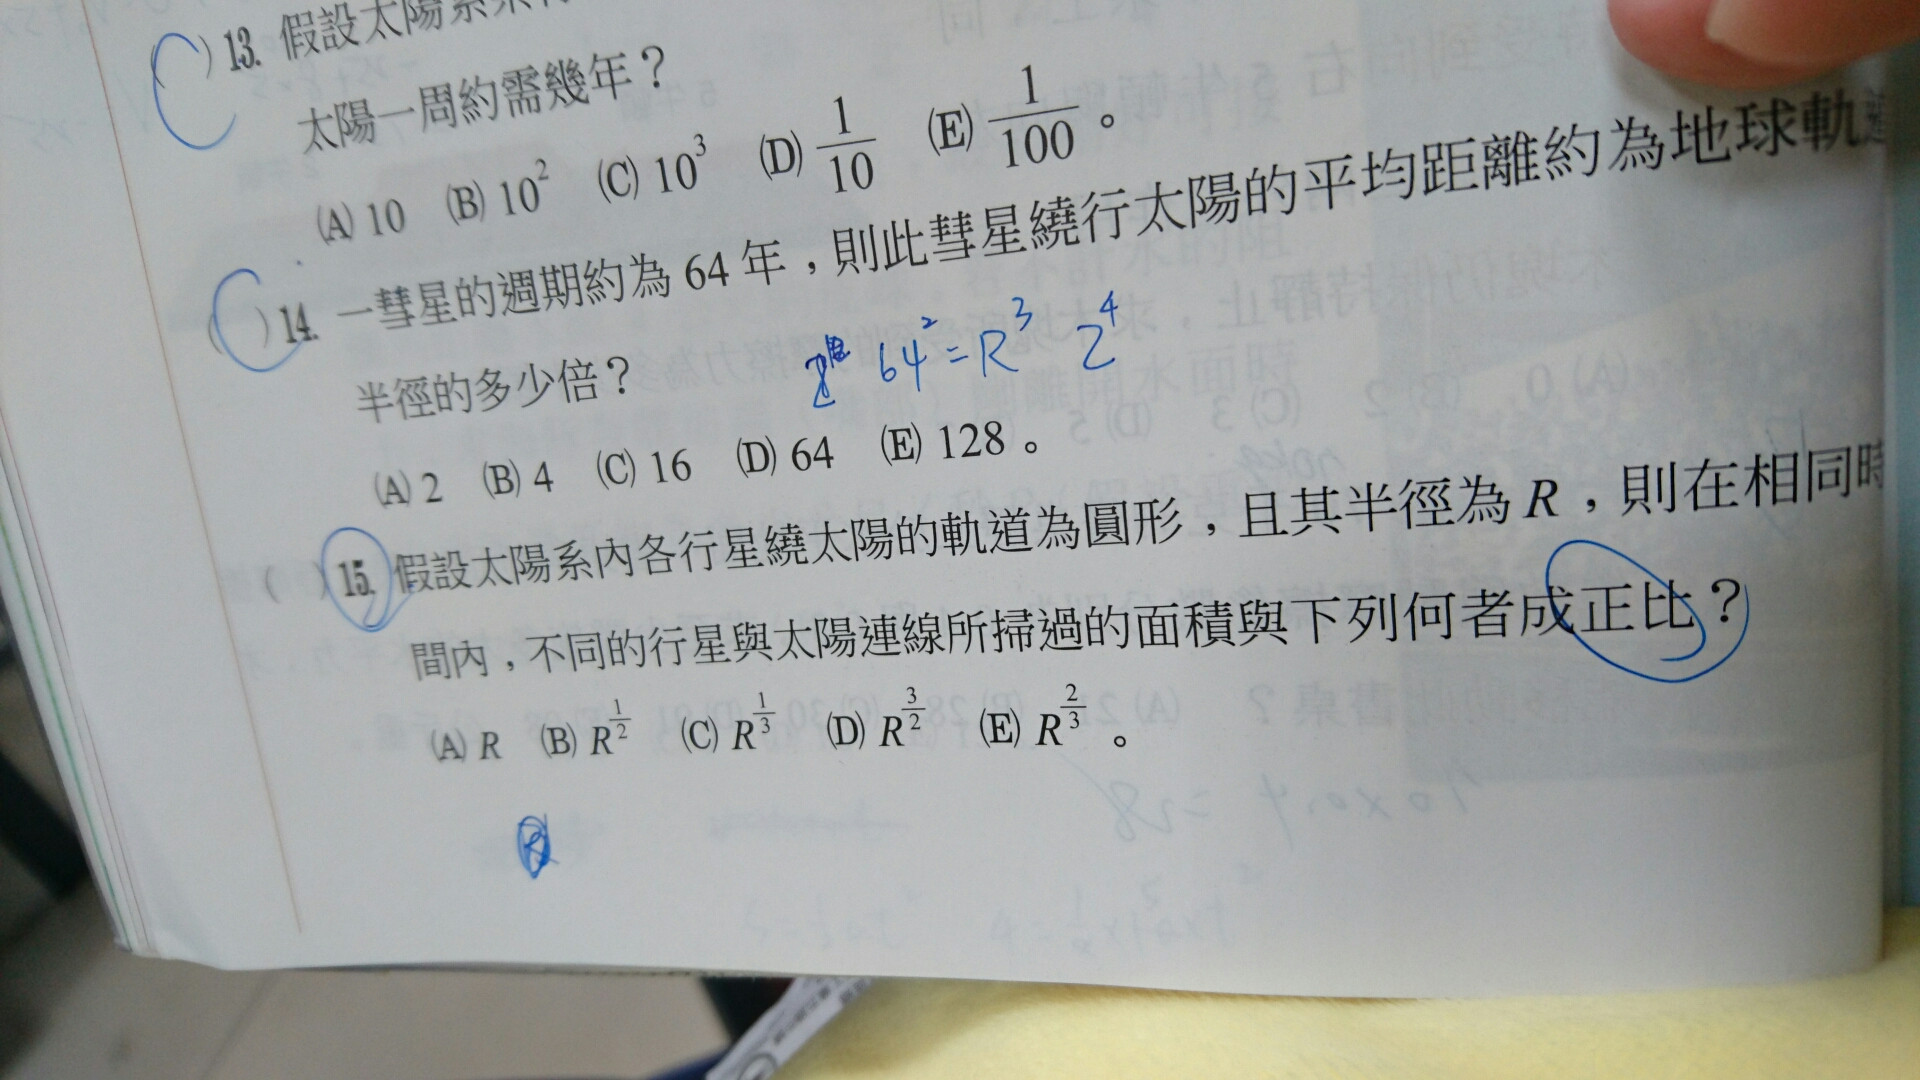 ( ) 13. 假設太陽系
太陽一周約需幾年？
(A) 10 (B) 10² (C) 10³ (D) 1/10 (E) 1/100 。
( ) 14. 一彗星的週期約為 64 年，則此彗星繞行太陽的平均距離約為地球軌道
半徑的多少倍？
64² = R³ 2⁴
(A) 2 (B) 4 (C) 16 (D) 64 (E) 128 。
( ) 15. 假設太陽系內各行星繞太陽的軌道為圓形，且其半徑為 R，則在相同時
間內，不同的行星與太陽連線所掃過的面積與下列何者成正比？
(A) R (B) R^1/2 (C) R^1/3 (D) R^3/2 (E) R^2/3 。